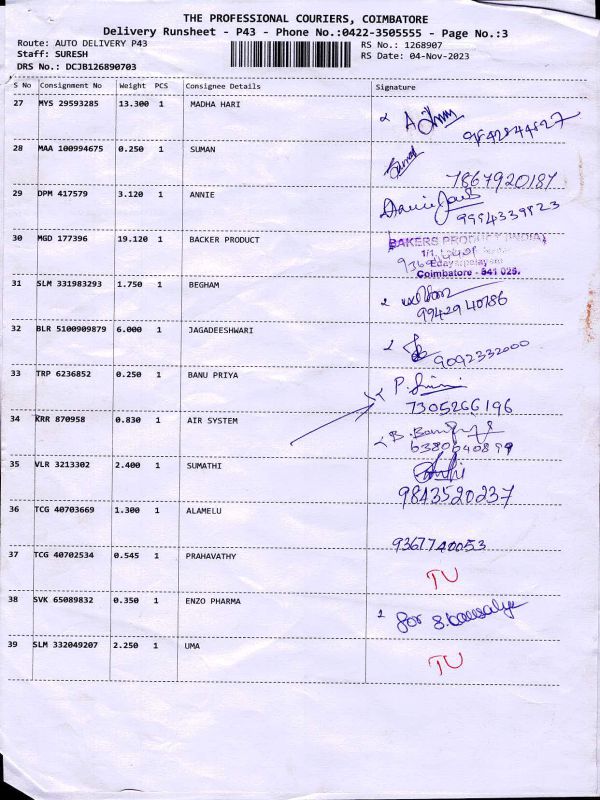 THE PROFESSIONAL COURIERS, COIMBATORE
Delivery Runsheet - P43 - Phone No.:0422-3505555 - Page No.:3
Route: AUTO DELIVERY P43 RS No.: 1268907
Staff: SURESH RS Date: 04-Nov-2023
DRS No.: DCJB126890703
S No Consignment No Weight PCS Consignee Details Signature
27 MYS 29593285 13.300 1 MADHA HARI
28 MAA 100994675 0.250 1 SUMAN
7867920187
29 DPM 417579 3.120 1 ANNIE
9994339823
30 MGD 177396 19.120 1 BACKER PRODUCT BAKERS PRODUCT (INDIA)
1/1,
Edayarpalayam
Coimbatore - 641 025.
31 SLM 331983293 1.750 1 BEGHAM
9942940786
32 BLR 5100909879 6.000 1 JAGADEESHWARI
9092332000
33 TRP 6236852 0.250 1 BANU PRIYA P.
7305266196
34 KRR 870958 0.830 1 AIR SYSTEM B.
6380640899
35 VLR 3213302 2.400 1 SUMATHI
9843520237
36 TCG 40703669 1.300 1 ALAMELU
9367740053
37 TCG 40702534 0.545 1 PRAHAVATHY
TU
38 SVK 65089832 0.350 1 ENZO PHARMA
for S.
39 SLM 332049207 2.250 1 UMA
TU